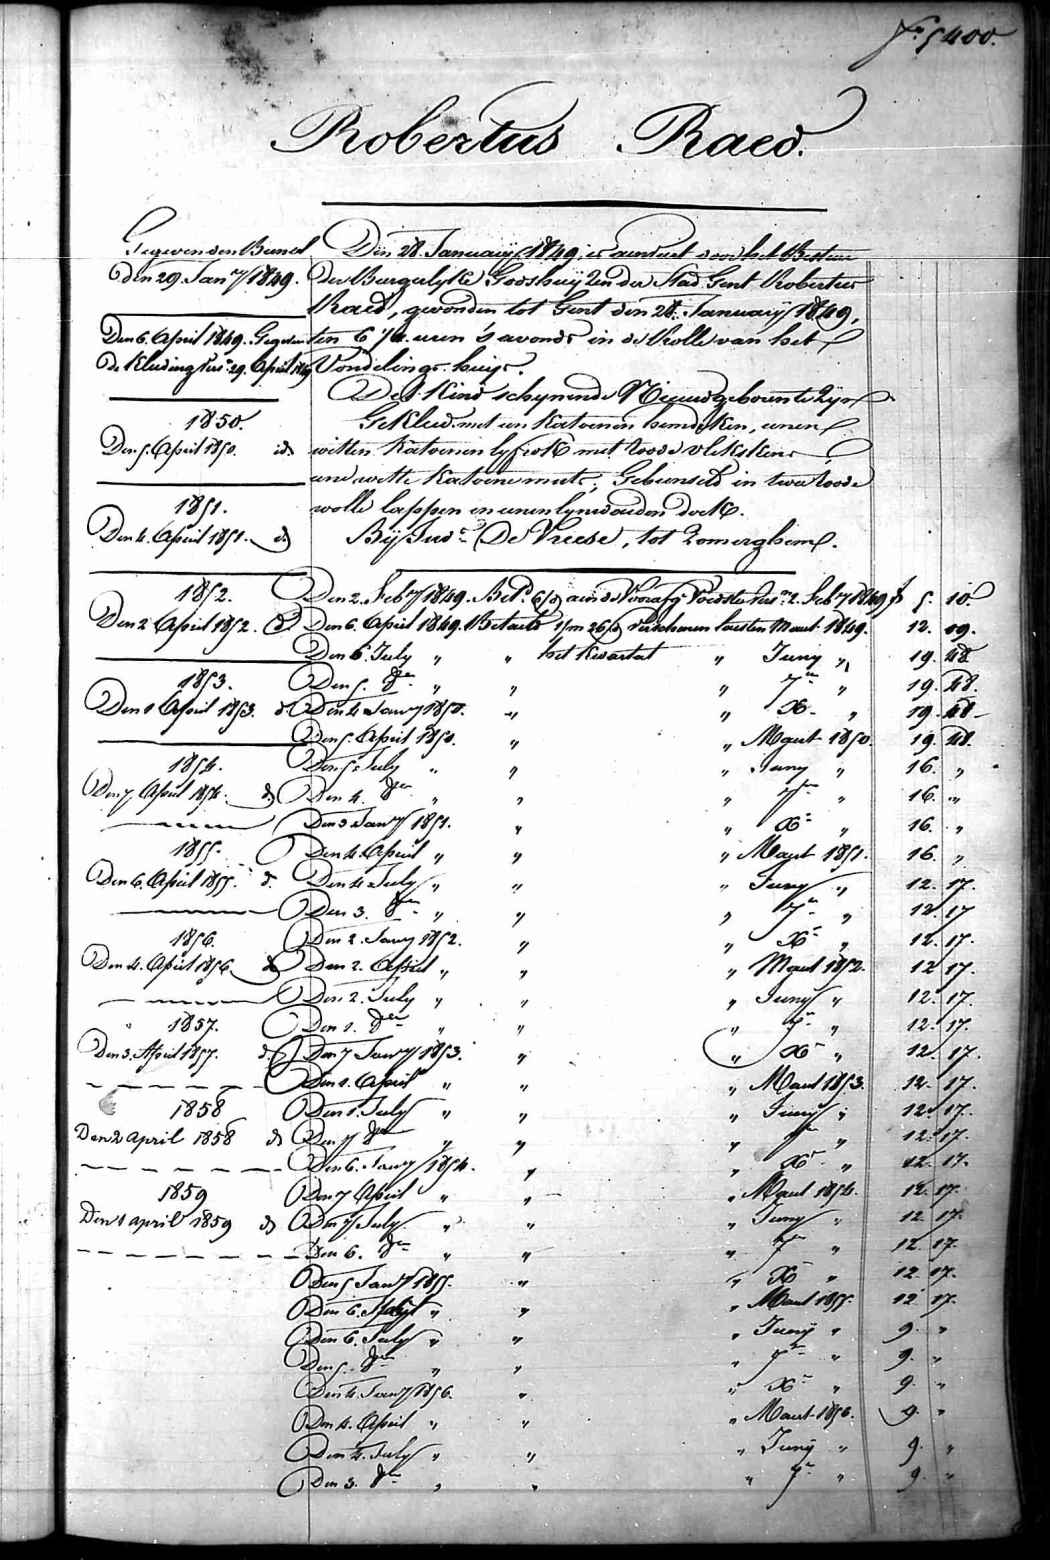 fo. 5400.
Robertus Raed.
Gegeven den Bunsel
den 29 Jany 1849.
Den 6. April 1849. Gegeven
de Kleding 29. April 1849
1850.
Den 5. April 1850. id
1851.
Den 4. April 1851. id
1852.
Den 2 April 1852. id
1853.
Den 1 April 1853. id
1854.
Den 7 April 1854. id
1855.
Den 6. April 1855. id
1856.
Den 4. April 1856 id
1857.
Den 3. April 1857. id
1858
Den 2 april 1858 id
1859
Den 1 april 1859 id
Den 28 Januarij 1849, is aenveert door het Bestuer
der Burgelyke Godshuyzen der Stad Gent Robertus
Raed, gevonden tot Gent den 28. Januarij 1849,
ten 6 1/4 uren 's avonds in de Rolle van het
Vondelings-huys.
Dat Kind schynende Nieuwgeboren te Zyn
Gekleed met een Katoenen hemdeken, eenen
witten Katoenen lyfrok met roode vlekskens
eene witte Katoene muts; Gebunseld in twee roode
wolle lappen en eenen lynwouden doek.
Bij Jud. De Vreese, tot Zomerghem.
Den 2. Feby 1849. Bet. 6/ aen de Voorafg. Voedster 2. Feby 1849 f 5. 10.
Den 6. April 1849. Betaelt 1/m 26/ verschenen laesten Maert 1849. 12. 09.
Den 6. July " " het Kwartael " Juny " 19. 48
Den 5. 8er " " " 7er " 19. 48.
Den 4 Jany 1850. " " Xr " 19. 48
Den 5. April 1850. " " Maert 1850. 19. 48.
Den 5. July " " " Juny " 16. "
Den 4. 8er " " " 7er " 16. "
Den 3 Jany 1851. " " Xr " 16. "
Den 4. April " " " Maert 1851. 16. "
Den 4 July " " " Juny " 12. 17.
Den 3. 8er " " " 7er " 12. 17
Den 2. Jany 1852. " " Xr " 12. 17.
Den 2. April " " " Maert 1852. 12 17.
Den 2. July " " " Juny " 12. 17.
Den 1. 8er " " " 7er " 12. 17.
Den 7 Jany 1853. " " Xr " 12. 17.
Den 1. April " " " Maert 1853. 12. 17.
Den 1. July " " " Juny " 12. 17.
Den 7 8er " " " 7er " 12. 17.
Den 6. Jany 1854. " " Xr " 12. 17.
Den 7 April " " " Maert 1854. 12. 17.
Den 7 July " " " Juny " 12. 17.
Den 6. 8er " " " 7er " 12. 17.
Den 5 Jany 1855. " " Xr " 12. 17.
Den 6. April " " " Maert 1855. 12 17.
Den 6. July " " " Juny " 9. "
Den 5. 8er " " " 7er " 9. "
Den 4. Jany 1856. " " Xr " 9. "
Den 4. April " " " Maert 1856. 9. "
Den 4. July " " " Juny " 9. "
Den 3. 8er " " " 7er " 9. "